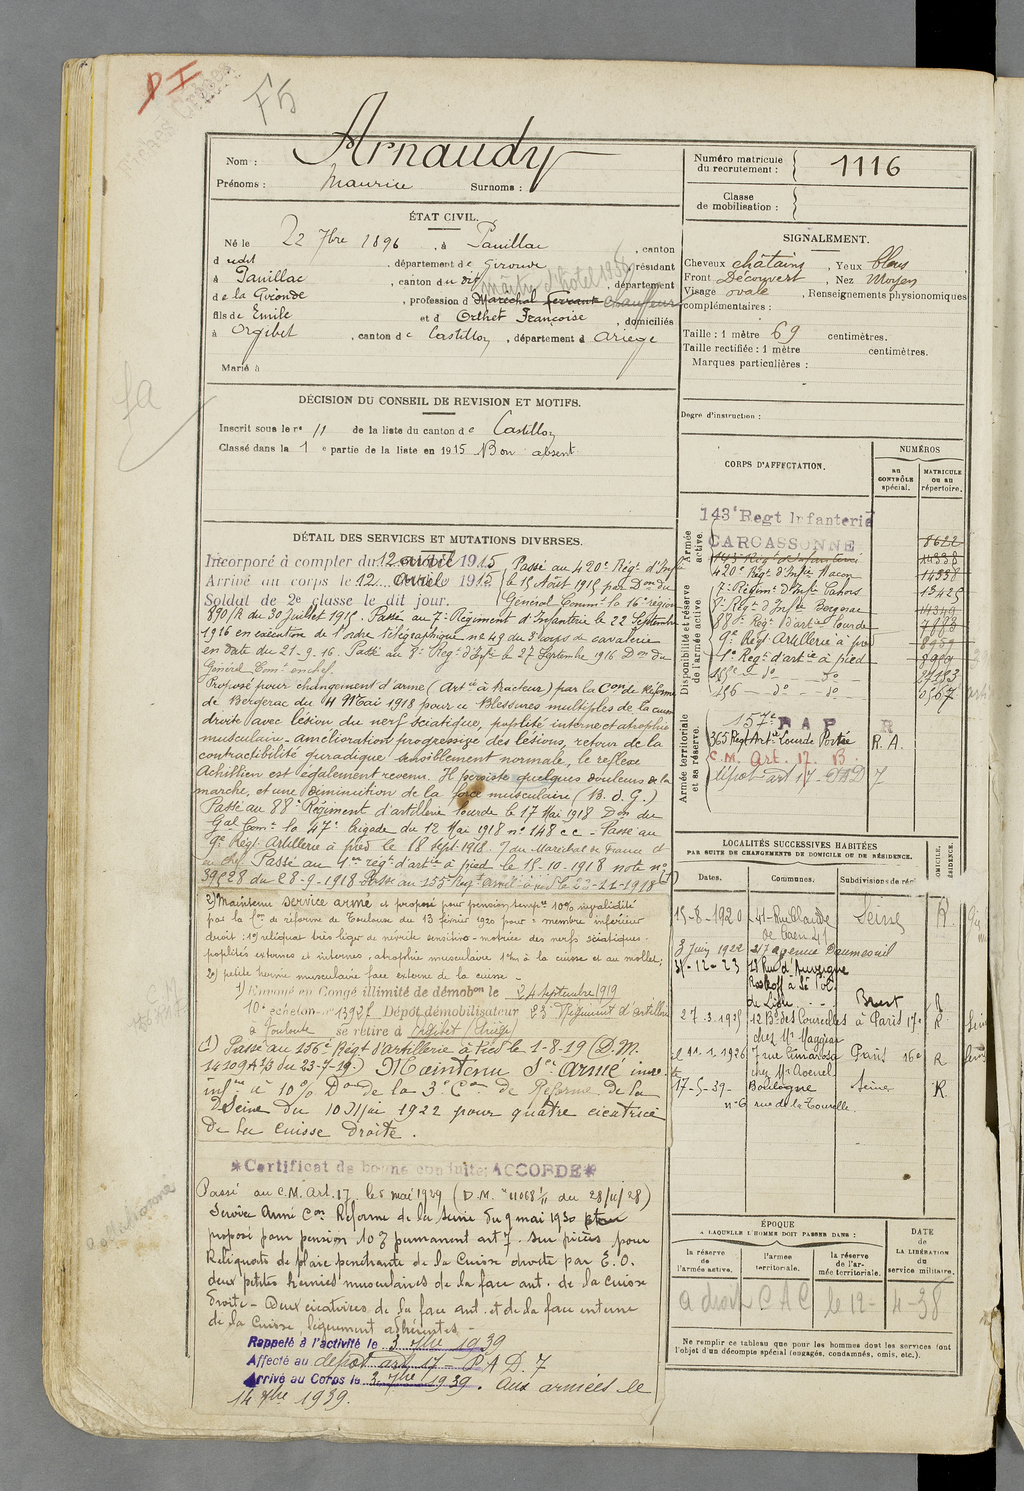 P I
F5
Nom : Arnaudy
Prénoms : Maurice Surnoms :
Numéro matricule du recrutement : 1116
Classe de mobilisation :
ÉTAT CIVIL.
Né le 22 7bre 1896, à Pauillac, canton
dudit, département de Gironde, résidant
à Pauillac, canton du dit, département
maître d'hôtel 1938
de la Gironde, profession d Maréchal ferrant chauffeur
fils de Emile et d Orthet Françoise, domiciliés
à Orgibet, canton de Castillon, département d Ariège
Marié à
SIGNALEMENT.
Cheveux châtains, Yeux bleus
Front Découvert, Nez Moyen
Visage ovale, Renseignements physionomiques
complémentaires :
Taille : 1 mètre 69 centimètres.
Taille rectifiée : 1 mètre centimètres.
Marques particulières :
Degré d'instruction :
DÉCISION DU CONSEIL DE REVISION ET MOTIFS.
Inscrit sous le n° 11 de la liste du canton de Castillon
Classé dans la 1e partie de la liste en 1915 Bon absent
DÉTAIL DES SERVICES ET MUTATIONS DIVERSES.
Incorporé à compter du 12 avril 1915
Arrivé au corps le 12 Avril 1915
Soldat de 2e classe le dit jour.
Passé au 420e Régt d'Infie
le 15 Août 1915 par Don du
Général Commt la 16e région
890/R du 30 Juillet 1915. Passé au 7e Régiment d'Infanterie le 22 Septembre
1916 en exécution de l'ordre télégraphique n° 49 du 3e corps de cavalerie
en date du 21-9-16. Passé au 8e Regt d'Infie le 27 Septembre 1916 Don du
Général Comt en chef.
Proposé pour changement d'arme (Artie à tracteur) par la Con de Réforme
de Bergerac du 4 Mai 1918 pour "Blessures multiples de la cuisse
droite avec lésion du nerf sciatique, poplité interne et atrophie
musculaire - amélioration progressive des lésions, retour de la
contractibilité faradique sensiblement normale, le reflexe
Achilléen est également revenu. Il persiste quelques douleurs de la
marche, et une diminution de la force musculaire (B. d. G.)
Passé au 88e Régiment d'artillerie lourde le 17 Mai 1918 Don du
Gal Comt la 47e brigade du 12 Mai 1918 n° 148 cc - Passé au
9e Régt Artillerie à pied le 18 Sept 1918. J du Maréchal de France et
en chef Passé au 1er régt d'artie à pied le 15-10-1918 note n°
39528 du 28-9-1918 Passé au 155e Regt d'artie à pied le 22-11-1918 (1)
2) Maintenu service armé et proposé pour pension tempre 10% invalidité
par la Con de réforme de Toulouse du 13 février 1920 pour : membre inférieur
droit : 1°) reliquat très léger de névrite sensitivo-motrice des nerfs sciatiques
poplités externes et internes, atrophie musculaire 1cm à la cuisse et au mollet,
2°) petite hernie musculaire face externe de la cuisse -
1) Envoyé en Congé illimité de démobon le 24 septembre 1919
10e échelon n° 1392 Dépôt démobilisateur 23e Régiment d'artillerie
à Toulouse se retire à Orgibet (Ariège)
(1) Passé au 156e Régt d'artillerie à Pied le 1-8-19 (D.M.
14109 A 1/3 du 23-7-19.) Maintenu Sce Armé inv.
infre à 10% Don de la 3e Con de Réforme de la
Seine du 10 Mai 1922 pour quatre cicatrices
de la cuisse droite.
*Certificat de bonne conduite: ACCORDE*
Passé au C.M. Art. 17 le 5 mai 1929 (D.M. n° 11068 1/11 du 28/11/28)
Service Armé Con Réforme de la Seine du 9 mai 1930
proposé pour pension 10% permanent art 7. sur pièces pour
Reliquats de plaie pénétrante de la Cuisse droite par E.O.
deux petites hernies musculaires de la face ant. de la cuisse
droite - Deux cicatrices de la face ant. et de la face interne
de la Cuisse légèrement adhérentes -
Rappelé à l'activité le 3 7bre 1939
Affecté au dépôt art 17 - P A D. 7
Arrivé au Corps le 3 7bre 1939. Aux armées le
14 7bre 1939.
CORPS D'AFFECTATION.
NUMÉROS
au CONTRÔLE spécial.
MATRICULE ou au répertoire.
Armée active.
143e Regt Infanterie
CARCASSONNE
8622
143e Régt d'Infanterie 14338
420e Régt d'Infie Macon 14338
Disponibilité et réserve de l'armée active
7e Régimt d'Infie Cahors 13425
8e Régt d'Infie Bergerac 14349
88e Régt d'art lourde 7883
9e Régt Artillerie à pied 8959
1e Régt d'artie à pied 8959
155e - do - do - 27183
156 - do - do - 0567
Armée territoriale et sa réserve.
157e R A P R
365 Régt Artie Lourde Portée R. A.
C.M. Art. 17. B
dépôt art 17 - PAD 7
LOCALITÉS SUCCESSIVES HABITÉES
PAR SUITE DE CHANGEMENTS DE DOMICILE OU DE RÉSIDENCE.
Dates. Communes. Subdivisions de rég
15-8-1920 41 Rue Claude Seine R
de Caen 41
3 Juin 1922 217 avenue Daumesnil
31-12-23 21 Rue d'Auvergne
Roskoff à St Pol
de Léon Brest R
27-3-1925 12 Bd des Courcelles à Paris 17e R
chez Mr Magyear
le 11-1-1926 7 rue Cimarosa Paris 16e R
chez Mr Avenel
17-5-39 Boulogne Seine R.
n° 6 rue de la Tourelle.
ÉPOQUE
A LAQUELLE L'HOMME DOIT PASSER DANS :
la réserve de l'armée active.
l'armée territoriale.
la réserve de l'armée territoriale.
DATE de LA LIBÉRATION du service militaire.
a droit C A C le 12-4-38
Ne remplir ce tableau que pour les hommes dont les services font
l'objet d'un décompte spécial (engagés, condamnés, omis, etc.).